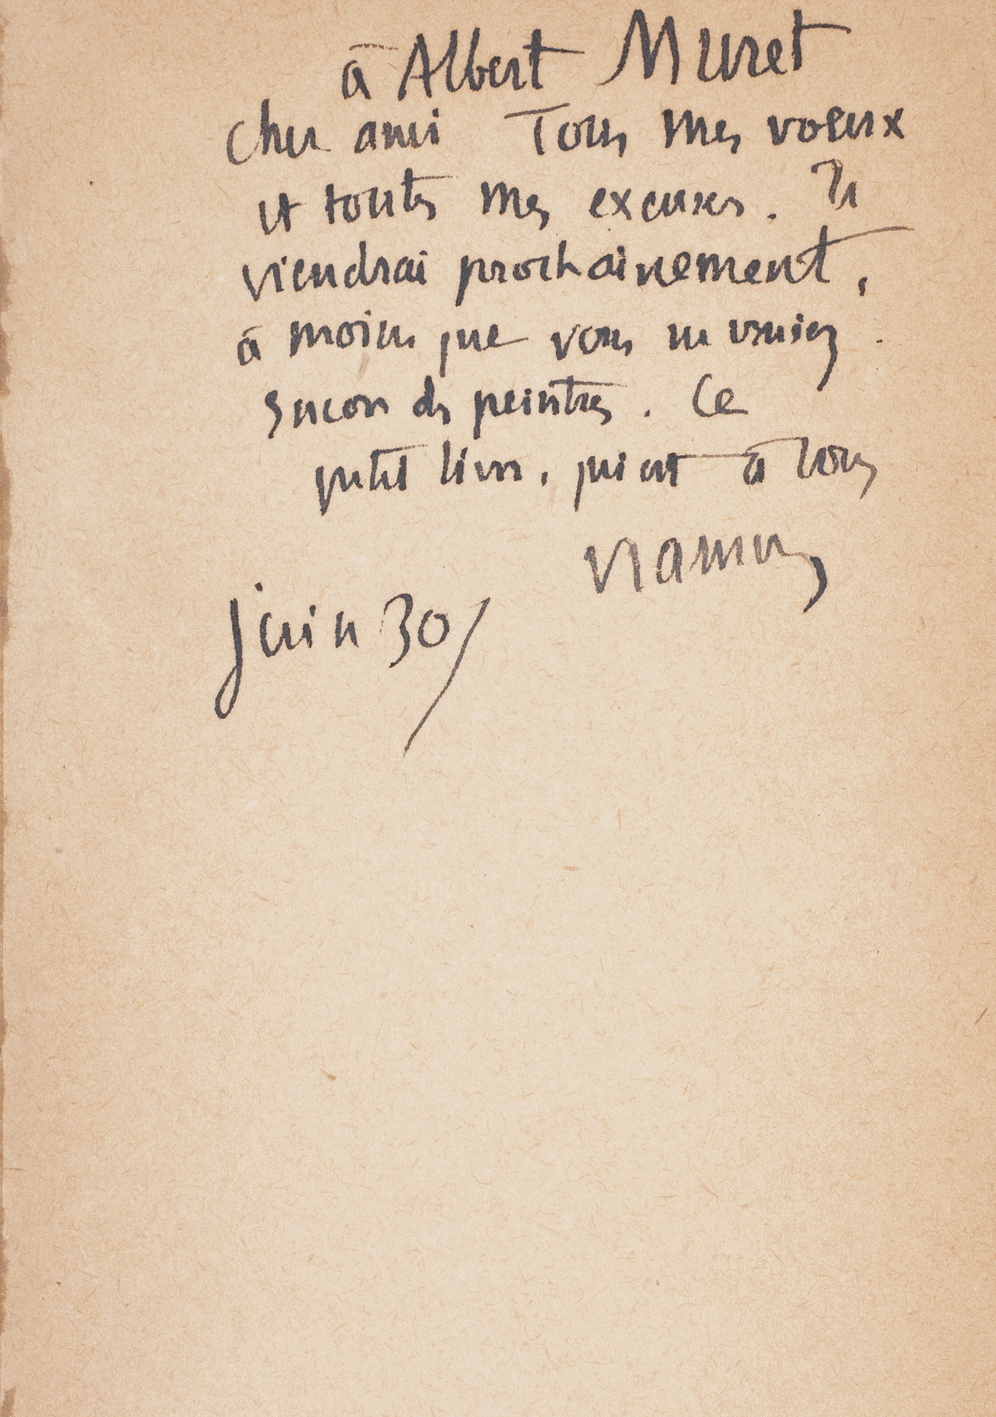 à Albert Muret
Cher ami Tous mes voeux
et toutes mes excuses. Je
viendrai prochainement,
à moins que vous ne veniez.
des peintres. Ce
petit livre, qui est à vous
Ramuz
juin 30/